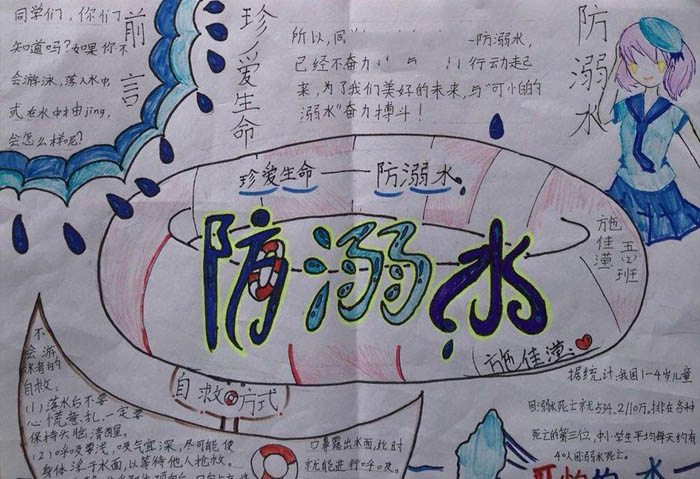 前言
同学们，你们
知道吗？如果你不
会游泳，落入水中
或在水中抽jing，
会怎么样呢？
珍爱生命
所以，同
防溺水，
已经不奋力
行动起
来，为了我们美好的未来，与“可怕的
溺水”奋力搏斗！
防溺水
珍爱生命——防溺水
防溺水
施佳潼
五(2)班
施佳潼
自救方式
不会游
泳者的
自救：
(1)落水后不要
心慌意乱，一定要
保持头脑清醒。
(2)呼吸要浅，吸气宜深，尽可能使
身体浮于水面，以等待他人抢救。
口鼻露出水面，此时
就能进行呼吸。
据统计：我国1-4岁儿童
因溺水死亡
排在各种
死亡的第三位，中小学生平均每天约有
40人因溺水死亡。
可怕的水